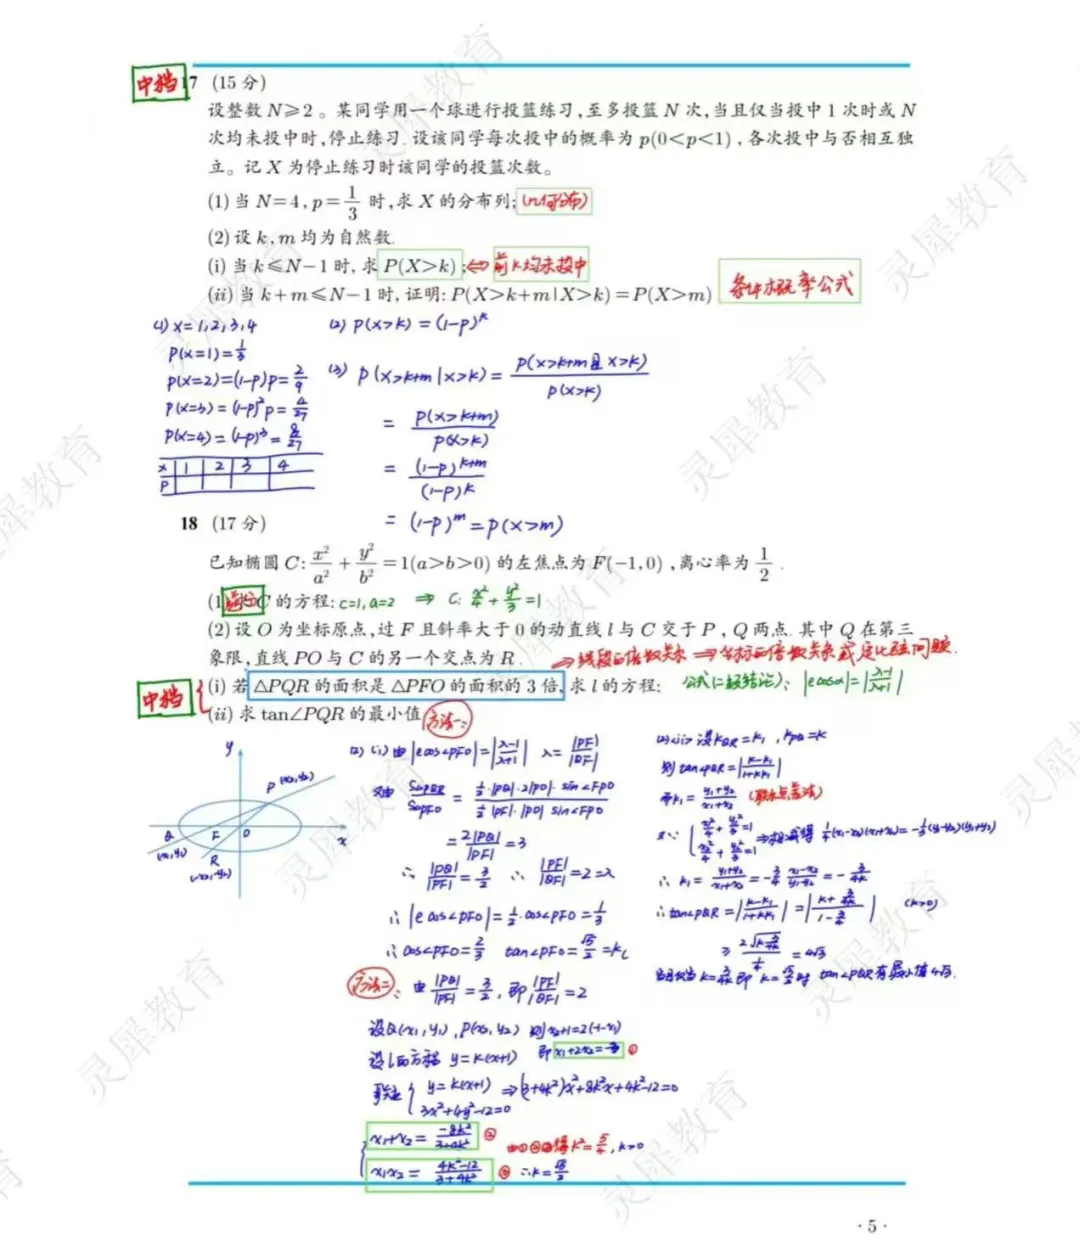 中档
17 (15分)
设整数N≥2。某同学用一个球进行投篮练习,至多投篮N次,当且仅当投中1次时或N
次均未投中时,停止练习.设该同学每次投中的概率为p(0<p<1),各次投中与否相互独
立。记X为停止练习时该同学的投篮次数。
(1)当N=4,p=1/3时,求X的分布列;(几何分布)
(2)设k,m均为自然数.
(i)当k≤N-1时,求P(X>k);⇔前k均未投中
(ii)当k+m≤N-1时,证明:P(X>k+m|X>k)=P(X>m) 条件概率公式
(1) X=1,2,3,4
P(X=1)=1/3
P(X=2)=(1-p)p=2/9
P(X=3)=(1-p)²p=4/27
P(X=4)=(1-p)³=8/27
X 1 2 3 4
P
(2) P(X>k)=(1-p)^k
(3) P(X>k+m|X>k)=P(X>k+m且X>k)/P(X>k)
=P(X>k+m)/P(X>k)
=(1-p)^(k+m)/(1-p)^k
=(1-p)^m=P(X>m)
18 (17分)
已知椭圆C:x²/a²+y²/b²=1(a>b>0)的左焦点为F(-1,0),离心率为1/2.
(1)C的方程:c=1,a=2 ⇒ C:x²/4+y²/3=1
(2)设O为坐标原点,过F且斜率大于0的动直线l与C交于P,Q两点.其中Q在第三
象限,直线PO与C的另一个交点为R. ⇒线段的倍数关系⇒坐标的倍数关系或定比弦问题.
中档
(i)若△PQR的面积是△PFO的面积的3倍,求l的方程; 公式(二级结论):|ecosα|=|(λ-1)/(λ+1)|
(ii)求tan∠PQR的最小值.
方法一:
y
P(x₂,y₂)
Q
(x₁,y₁)
F
O
x
R
(-x₂,-y₂)
(2)(i)由|ecos∠PFO|=|(λ-1)/(λ+1)| λ=|PF|/|QF|
又由 S△PQR/S△PFO=(1/2·|PQ|·2|PO|·sin∠FPO)/(1/2|PF|·|PO|sin∠FPO)
=2|PQ|/|PF|=3
∴|PQ|/|PF|=3/2 ∴|PF|/|QF|=2=λ
∴|ecos∠PFO|=1/2·cos∠PFO=1/3
∴cos∠PFO=2/3 tan∠PFO=√5/2=k_l
方法二: 由|PQ|/|PF|=3/2,即|PF|/|QF|=2
设Q(x₁,y₁),P(x₂,y₂) 则x₂+1=2(-1-x₁)
设l的方程 y=k(x+1) 即 ①
联立{y=k(x+1)
3x²+4y²-12=0 ⇒(3+4k²)x²+8k²x+4k²-12=0
x₁+x₂=-8k²/(3+4k²) ②
x₁x₂=(4k²-12)/(3+4k²) ③
由①②③得k²=5/4,k>0
∴k=√5/2
(2)(ii)设k_QR=k₁,k_PQ=k
则tan∠PQR=|(k-k₁)/(1+kk₁)|
而k₁=(y₁+y₂)/(x₁+x₂) (联想点差法)
又∵{x₁²/4+y₁²/3=1
x₂²/4+y₂²/3=1 ⇒相减得 1/4(x₁-x₂)(x₁+x₂)=-1/3(y₁-y₂)(y₁+y₂)
∴k₁=(y₁+y₂)/(x₁+x₂)=-3/4·(x₁-x₂)/(y₁-y₂)=-3/4k
∴tan∠PQR=|(k-k₁)/(1+kk₁)|=|(k+3/4k)/(1-3/4)| (k>0)
≥2√(k·3/4k)/(1/4)=4√3
当且仅当k=3/4k即k=√3/2时 tan∠PQR有最小值4√3.
·5·
灵犀教育